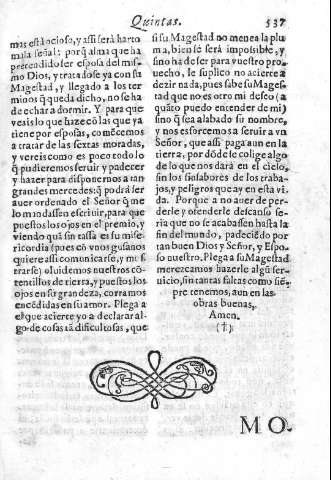 Quintas.
537
mas està ociosa, y assi serà harto
mala señal: porq̃ alma que ha
pretendido ser esposa del mis-
mo Dios, y tratadose ya con su
Magestad, y llegado a los ter
minos q̃ queda dicho, no se ha
de echar a dormir. Y para que
veais lo que haze cõ las que ya
tiene por esposas, comẽcemos
a tratar de las sextas moradas,
y vereis como es poco todo lo
q̃ pudieremos seruir y padecer
y hazer para disponernos a tan
grandes mercedes: q̃ podrà ser
auer ordenado el Señor q̃ me
lo mandassen escriuir, para que
puestos los ojos en el premio, y
viendo quã sin tassa es su mise-
ricordia (pues cõ vnos gusanos
quiere assi comunicarse, y mos
trarse) oluidemos nuestros cõ-
tentillos de tierra, y puestos los
ojos en su grandeza, corramos
encẽdidas en su amor. Plega a
el que acierte yo a declarar al-
go de cosas tã dificultosas, que
si su Magestad no menea la plu
ma, bien sè serà impossible, y
sino ha de ser para vuestro pro-
uecho, le suplico no acierte a
dezir nada, pues sabe su Mages-
tad que no es otro mi desseo (a
quãto puedo entender de mi)
sino q̃ sea alabado su nombre,
y nos esforcemos a seruir a vn
Señor, que assi paga aun en la
tierra, por dõde se colige algo
de lo que nos darà en el cielo,
sin los sinsabores de los traba-
jos, y peligros que ay en esta vi
da. Porque a no auer de per-
derle y ofenderle descanso se-
ria que no se acabassen hasta la
fin del mundo, padeciẽdo por
tan buen Dios y Señor, y Espo-
so nuestro. Plega a su Magestad
merezcamos hazerle algũ ser-
uicio, sin tantas faltas como siẽ-
pre tenemos, aun en las
obras buenas.
Amen.
(†)
MO-